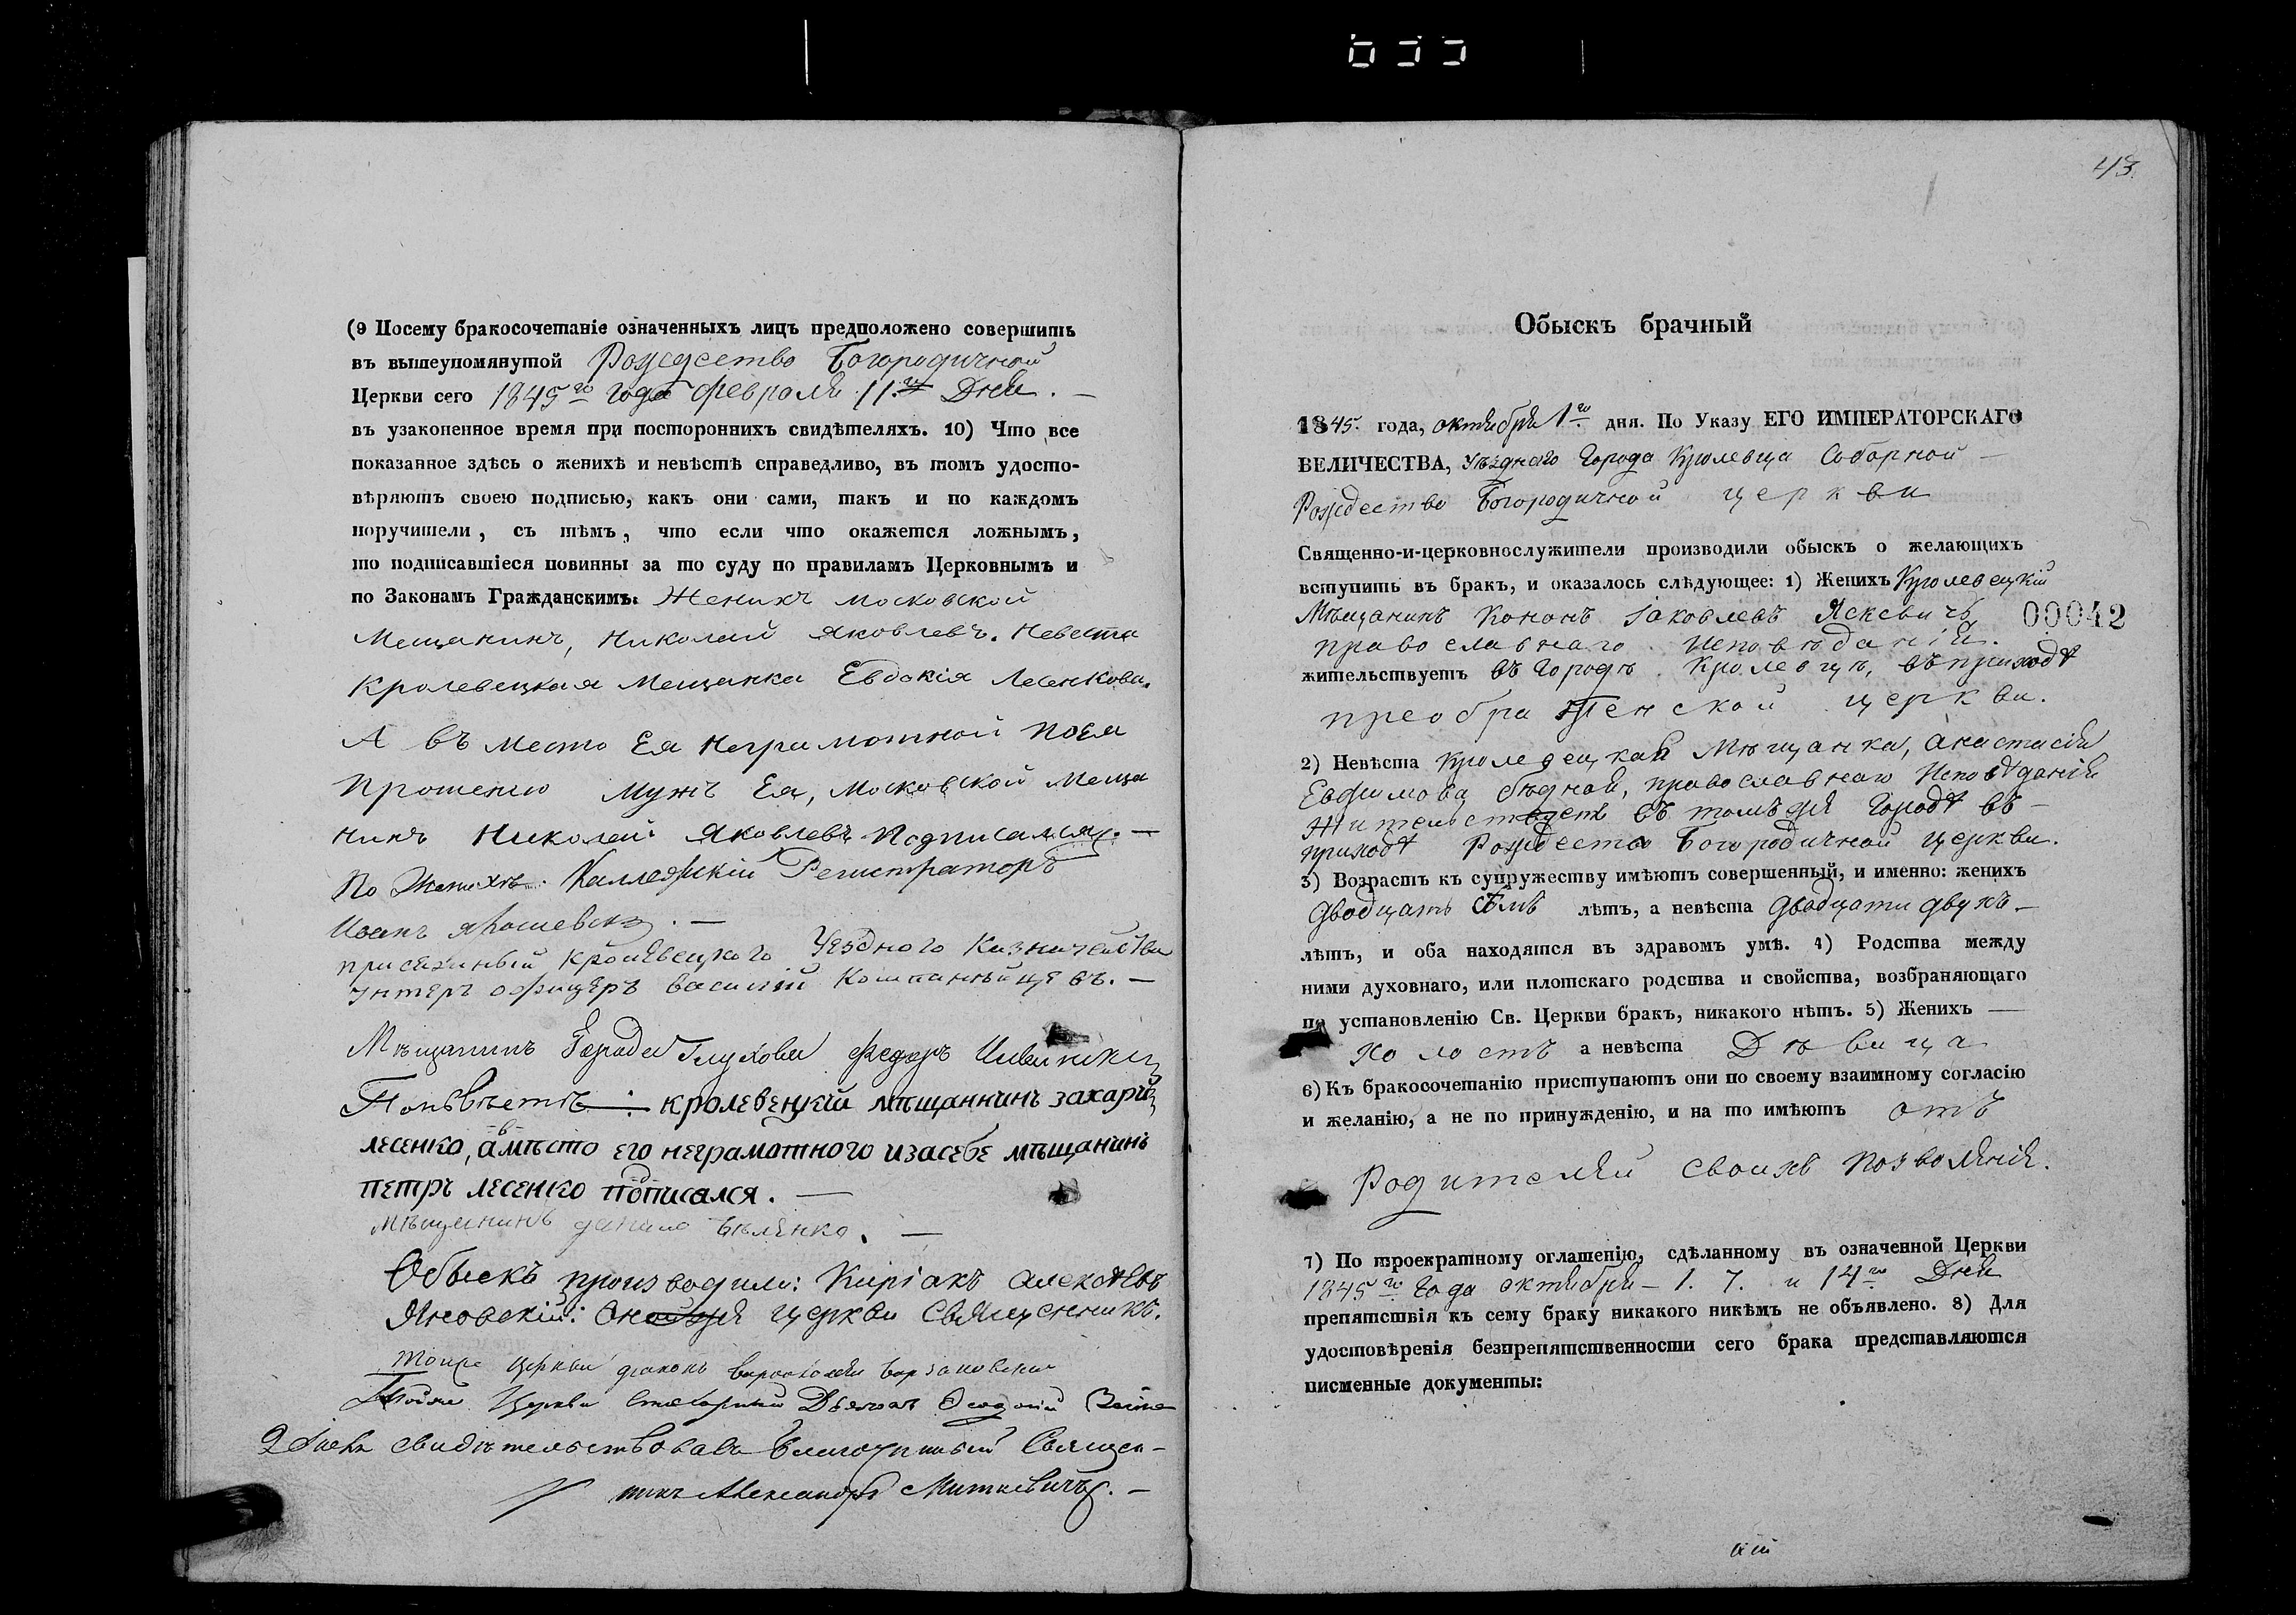 (9 Посему бракосочетаніе означенныхъ лицъ предположено совершить
въ вышеупомянутой Рождество Богородичной
Церкви сего 1845го года февраля 11го Дня. —
въ узаконенное время при постороннихъ свидѣтеляхъ. 10) Что все
показанное здѣсь о женихѣ и невѣстѣ справедливо, въ томъ удосто-
вѣряютъ своею подписью, какъ они сами, такъ и по каждомъ
поручители, съ тѣмъ, что если что окажется ложнымъ,
то подписавшіеся повинны за то суду по правиламъ Церковнымъ и
по Законамъ Гражданскимъ: Женихъ московской
Мещанинъ, Николай Яковлевъ. Невеста
Кролевецкая Мещанка Евдокія Лесенкова.
А въ место Ея Неграмотной поея
Прошению мужъ Ея, Московской Меща
нинъ Николай Яковлевъ Подписался. —
По Женихѣ: Каллежскій Регистраторъ
Иванъ
присяжный Кролевецкого Уезднаго Казначейства
унтеръ офицеръ Василій
Мѣщанинъ Города Глухова Федоръ
По невѣстѣ: кролевецкій мѣщанинъ захарій
лесенко, а вмѣсто его неграмотного изасебе мѣщанинъ
петръ лесенко подписался. —
Мѣщанинъ данило бѣленко. —
Обыскъ производили: Киріакъ Алексѣевъ
Яновскій: Оной церкви Священникъ.
Тоиже церкви диаконъ
Тойже Церкви
свидѣтельствовалъ Благочинный Священ-
никъ Александръ Миткевичъ. —
43.
Обыскъ брачный
1845. года, октября 1го дня. По Указу ЕГО ИМПЕРАТОРСКАГО
ВЕЛИЧЕСТВА, уѣзднаго Города Кролевца Соборной —
Рождество Богородичной церкви
Священно-и-церковнослужители производили обыскъ о желающихъ
вступить въ бракъ, и оказалось слѣдующее: 1) Женихъ Кролевецкій
Мѣщанинъ Кононъ Іаковлевъ Яскевичъ 00042
православнаго исповѣданія.
жительствуетъ въ Городѣ Кролевцѣ, въ приходѣ
преображенской церкви.
2) Невѣста Кролевецкая Мѣщанка, Анастасія
Евфимова бѣдная, православнаго Исповѣданія
Жительствуетъ въ томъ же Городѣ въ —
приходѣ Рождество Богородичной церкви.
3) Возрастъ къ супружеству имѣютъ совершенный, и именно: женихъ
Двадцать сѣмь лѣтъ, а невѣста Двадцати двухъ —
лѣтъ, и оба находятся въ здравомъ умѣ. 4) Родства между
ними духовнаго, или плотскаго родства и свойства, возбраняющаго
по установленію Св. Церкви бракъ, никакого нѣтъ. 5) Женихъ —
Холостъ а невѣста Дѣвица
6) Къ бракосочетанію приступаютъ они по своему взаимному согласію
и желанію, а не по принужденію, и на то имѣютъ отъ
Родителей своихъ позволеніе.
7) По троекратному оглашенію, сдѣланному въ означенной Церкви
1845го Года октября — 1. 7. и 14го Дня
препятствія къ сему браку никакого никѣмъ не объявлено. 8) Для
удостовѣренія безпрепятственности сего брака представляются
писменные документы: